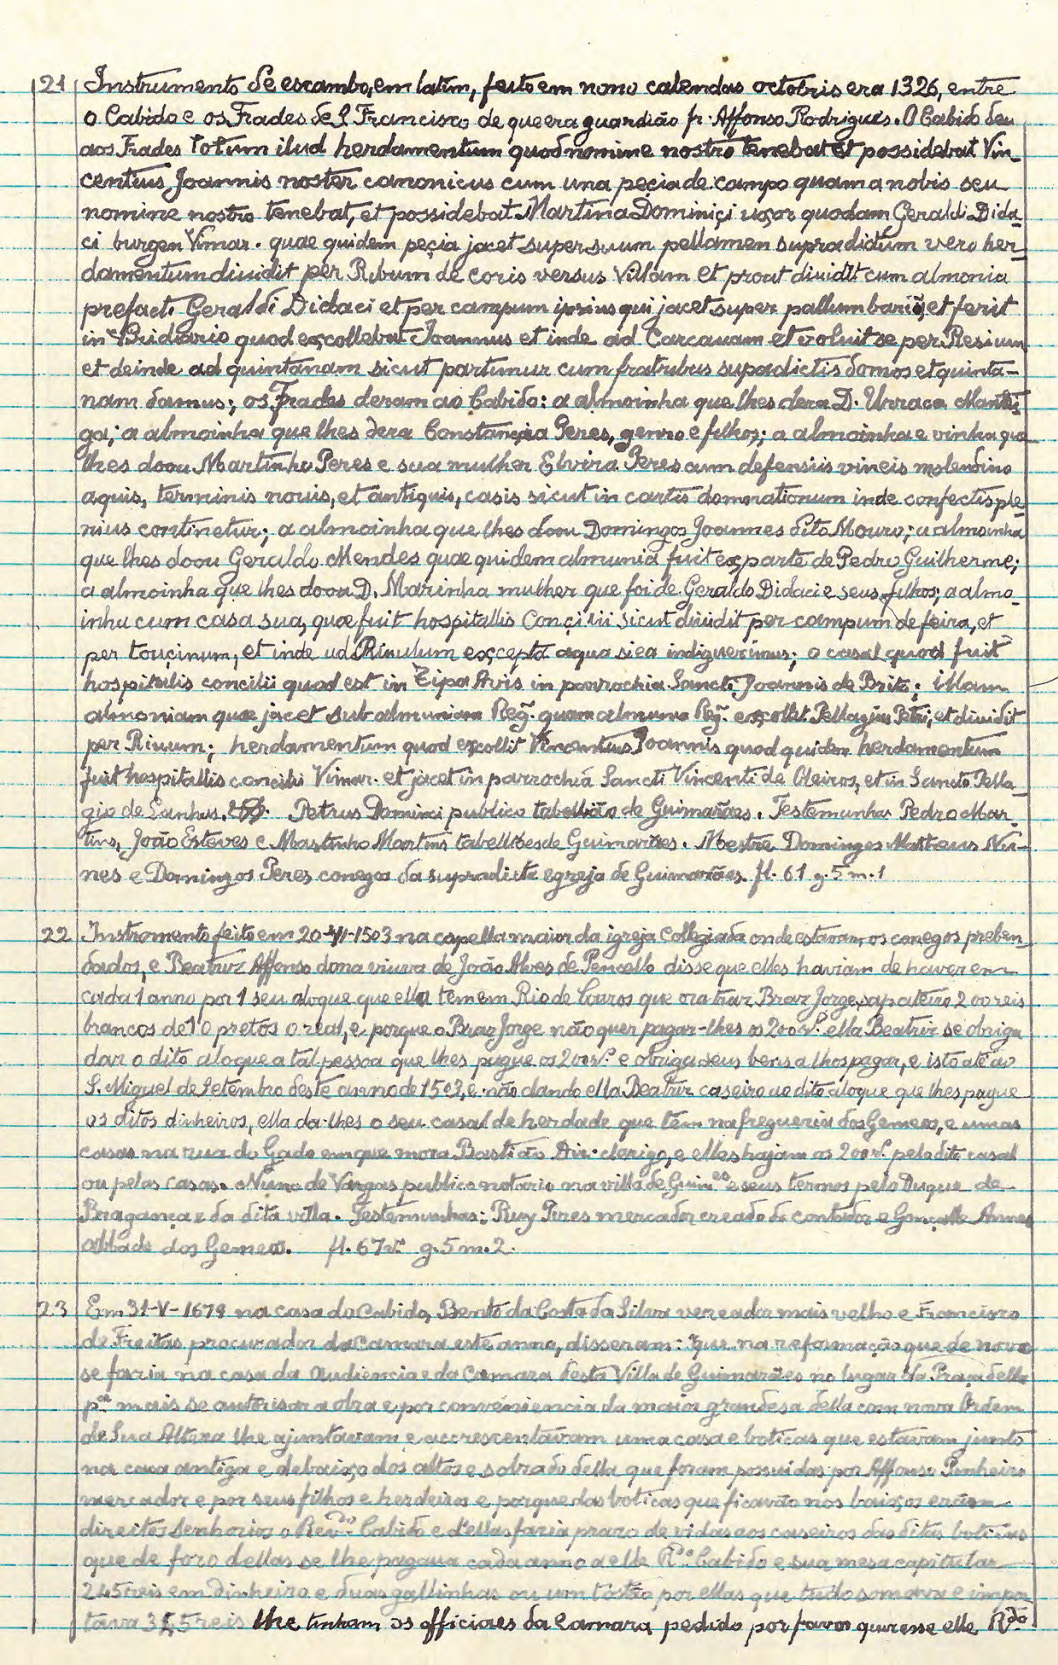 21 Instrumento de escambo, em latim, feito em nono calendas octobris era 1326, entre
o Cabido e os Frades de S. Francisco de que era guardião fr. Affonso Rodrigues. O Cabido deu
aos Frades totum ilud herdamentum quod nomine nostro tenebat et possidebat Vin-
centius Joannis noster canonicus cum una peçia de campo quam a nobis seu
nomine nostro tenebat, et possidebat Martina Dominiçi uxor quodam Geraldi Dida-
ci burgen Vimar. quae quidem peçia jacet super suum pellamen supradictum vero her-
damentum diuidit per Ribum de coris versus Villam et prout diuidit cum almonia
prefacti Geraldi Didaci et per campum ipsius qui jacet super pallumbariũ, et ferit
in Bridiario quod excollebat Joannus et inde ad Carcauam et voluit se per Resium
et deinde ad quintanam sicut partimur cum fratribus supadictis domos et quinta-
nam damus; os Frades deram ao Cabido: a almoinha que lhes dera D. Urraca
ga; a almoinha que lhes dera Constançia Peres, genro e filhos; a almoinha e vinha que
lhes doou Martinho Peres e sua mulher Elvira Peres cum defensiis vineis molendino
aquis, terminis novis, et antiquis, casis sicut in cartis domnationum inde confectis ple-
nius continetur; a almoinha que lhes doou Domingos Joannes dito Mouro; a almoinha
que lhes doou Geraldo Mendes quae quidem almunia fuit ex parte de Pedro Guilherme;
a almoinha que lhes doou D. Marinha mulher que foi de Geraldo Didaci e seus filhos; a almo-
inha cum casa sua, quae fuit hospitallis Conçilii sicut diuidit per campum de feira, et
per touçinum, et inde ad Riuulum excepta aqua si ea indiguerimus; o casal quod fuit
hospitalis concilii quod est in Ripa Avis in parrochia Sancti Joannis de Brito; illam
almoniam quae jacet sub almuniam Reg. quam almunia Reg. excollit Pellagius Petri, et diuidit
per Riuum; herdamentum quod excollit Vincentius Joannis quod quidem herdamentum
fuit hospitallis concilii Vimar. et jacet in parrochia Sancti Vincenti de Oleiros, et in Sancto Pella-
gio de Petrus Dominici publico tabellião de Guimarães. Testemunhas Pedro Mar-
tins, João Esteves e Martinho Martins tabelliães de Guimarães. Mestre Domingos Matheus Nu-
nes e Domingos Peres conegos da supradicta egreja de Guimarães. fl. 61 g. 5 m. 1
22 Instromento feito em 20-VI-1503 na capella maior da igreja Collegiada onde estavam os conegos preben-
dados, e Beatriz Affonso dona viuva de João Alves de Pencello disse que elles haviam de haver em
cada 1 anno por 1 seu aloque que ella tem em Rio de Couros que ora traz Braz Jorge, sapateiro 200 reis
brancos de 10 pretos o real, e porque o Braz Jorge não quer pagar-lhes os 200 rs. ella Beatriz se obriga
dar o dito aloque a tal pessoa que lhes pague os 200 rs. e obriga seus bens a lhos pagar, e isto até ao
S. Miguel de Setembro deste anno de 1503, e não dando ella Beatriz caseiro ao dito aloque que lhes pague
os ditos dinheiros, ella da-lhes o seu casal de herdade que tem na freguezia dos Gemeos, e umas
casas na rua do Gado em que mora Bastião Dir. clerigo, e elles hajam os 200 rs. pelo dito casal
ou pelas casas. Nuno de Vargas publico notario na villa de Guim.es e seus termos pelo Duque de
Bragança e da dita villa. Testemunhas: Ruy Pires mercador creado do contador e Gonçallo Annes
abbade dos Gemeos. fl. 67 vº g. 5 m. 2.
23 Em 31-V-1678 na casa do Cabido, Bento da Costa da Silva vereador mais velho e Francisco
de Freitas procurador da Camara este anno, disseram: Que na reformação que de novo
se fazia na casa da Audiencia e da Camara desta Villa de Guimarães no lugar da Praça della
p.ª mais se autorisar a obra e por conveniencia da maior grandesa della com nova Ordem
de Sua Alteza lhe ajuntavam e accrescentavam uma casa e boticas que estavam junto
na casa antiga e debaixo dos altos e sobrado della que foram possuidas por Affonso Pinheiro
mercador e por seus filhos e herdeiros e porque das boticas que ficavão nos baixos eram
direitos Senhorios o Revdo. Cabido e d'ellas faria prazo de vidas aos caseiros das ditas boticas
que de foro dellas se lhe pagava cada anno a elle Rdo. Cabido e sua mesa capitular
245 reis em dinheiro e duas gallinhas ou um tostão por ellas que tudo somava e impor-
tava 345 reis lhe tinham os officiaes da camara pedido por favor quizesse elle Rdo.